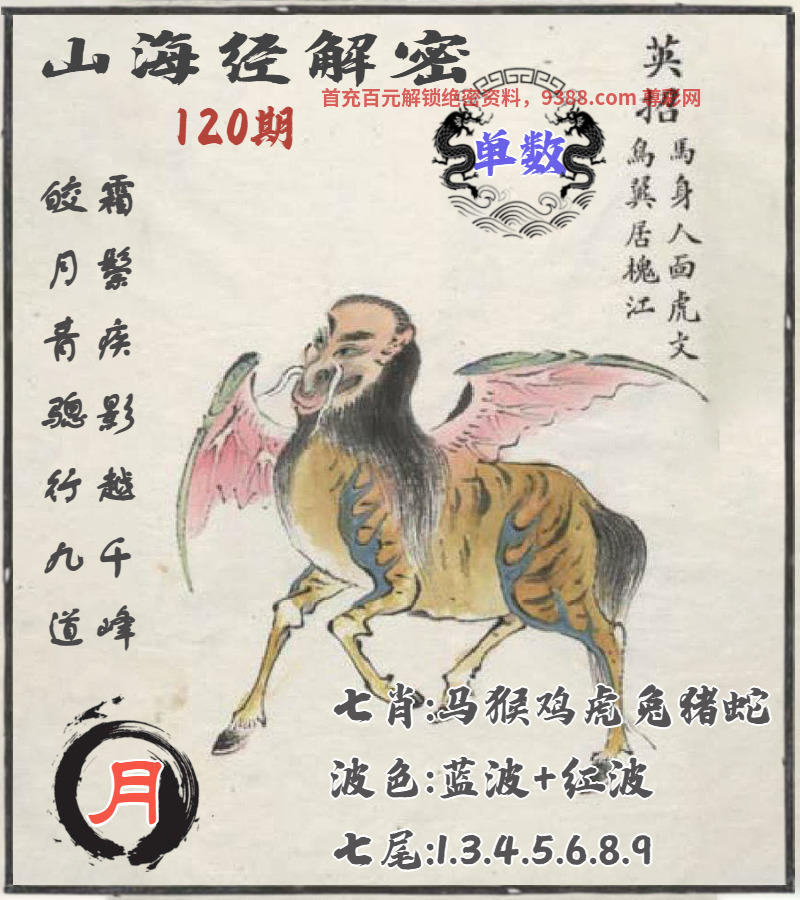 山海经解密
120期
首充百元解锁绝密资料，9388.com 尊彩网
单数
英招
馬身人面虎文
鳥翼居槐江
霜鬃疾影越千峰
皎月青骢行九道
月
七肖:马猴鸡虎兔猪蛇
波色:蓝波+红波
七尾:1.3.4.5.6.8.9